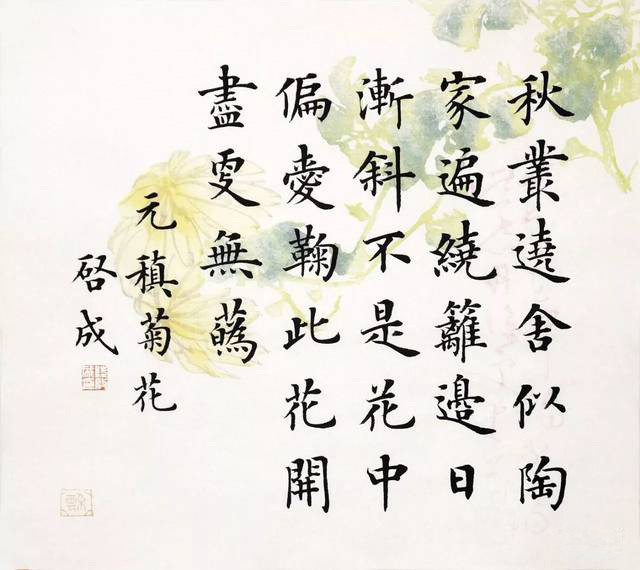 秋叢遶舍似陶
家遍繞籬邊日
漸斜不是花中
偏愛鞠此花開
盡更無蘤
元稹菊花
啓成